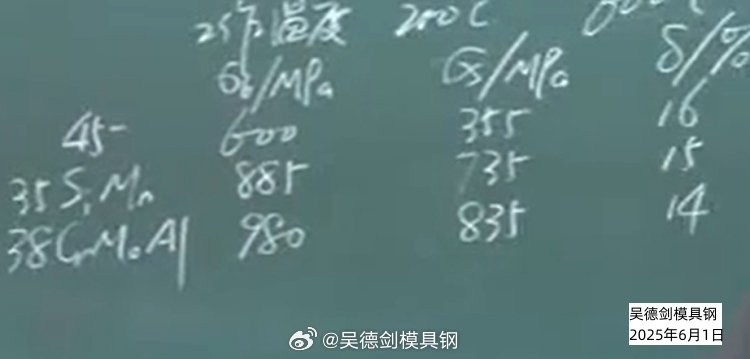 25 温度 200℃
σb/MPa σs/MPa δ/%
45- 600 355 16
35SiMn 885 735 15
38CrMoAl 980 835 14
@吴德剑模具钢
吴德剑模具钢
2025年6月1日